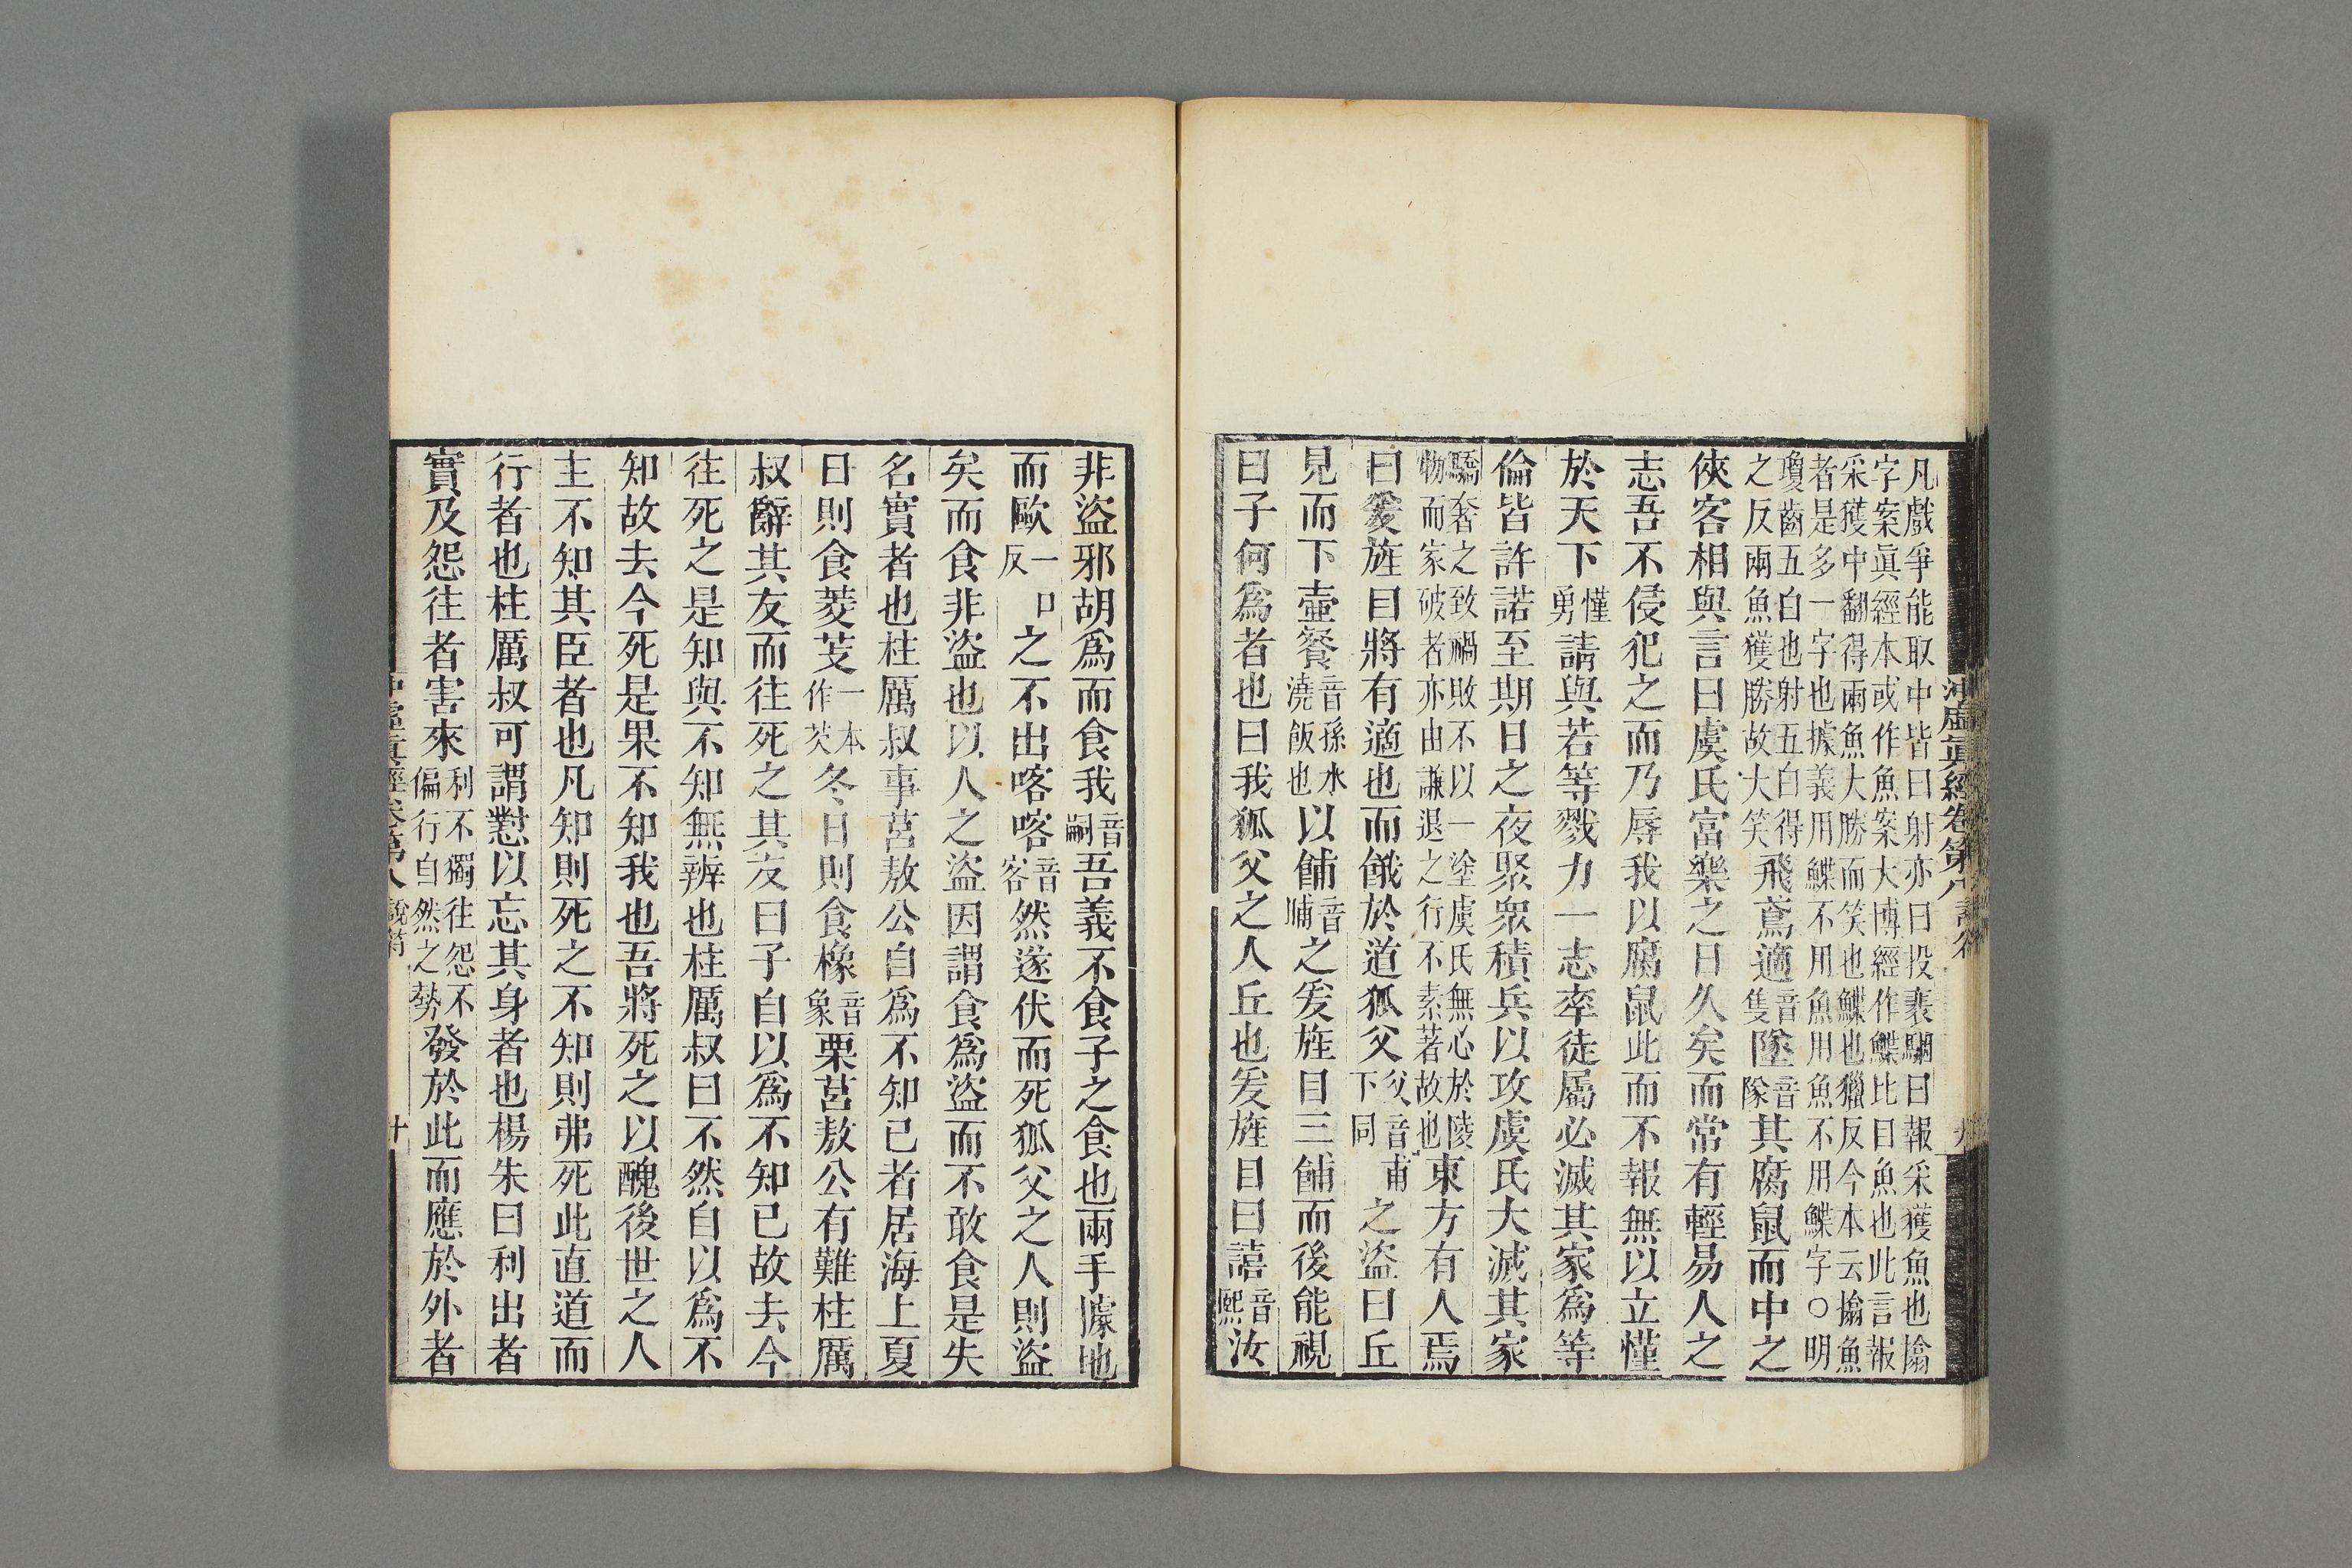 沖虛眞經卷第八 說符 九
凡戲爭能取中皆曰射亦曰投裴駰曰報采獲魚也㩉
字案眞經本或作魚案大博經作鰈比目魚也此言報
采獲中翻得兩魚大勝而笑也鰈也獵反今本云㩉魚
者是多一字也據義用鰈不用魚用魚不用鰈字○明
瓊齒五白也射五白得之反兩魚獲勝故大笑飛鳶適音隻墜音隊其腐鼠而中之
俠客相與言曰虞氏富樂之日久矣而常有輕易人之
志吾不侵犯之而乃辱我以腐鼠此而不報無以立慬
於天下慬勇請與若等戮力一志率徒屬必滅其家爲等
倫皆許諾至期日之夜聚眾積兵以攻虞氏大滅其家
驕奢之致禍敗不以一塗虞氏無心於陵物而家破者亦由謙退之行不素著故也東方有人焉
曰爰旌目將有適也而餓於道狐父父音甫下同之盜曰丘
見而下壺餐音孫水澆飯也以餔音哺之爰旌目三餔而後能視
曰子何爲者也曰我狐父之人丘也爰旌目曰譆音熙汝
非盜邪胡爲而食我音嗣吾義不食子之食也兩手據地
而歐一口反之不出喀喀音客然遂伏而死狐父之人則盜
矣而食非盜也以人之盜因謂食爲盜而不敢食是失
名實者也柱厲叔事莒敖公自爲不知已者居海上夏
日則食菱芰一本作芡冬日則食橡音象栗莒敖公有難柱厲
叔辭其友而往死之其友曰子自以爲不知已故去今
往死之是知與不知無辨也柱厲叔曰不然自以爲不
知故去今死是果不知我也吾將死之以醜後世之人
主不知其臣者也凡知則死之不知則弗死此直道而
行者也柱厲叔可謂懟以忘其身者也楊朱曰利出者
實及怨往者害來利不獨往怨不偏行自然之勢發於此而應於外者
沖虛眞經卷第八 說符 十